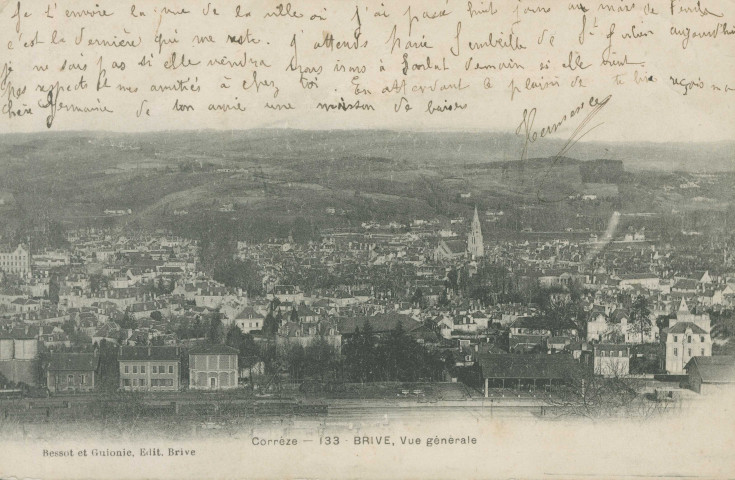 Je t'envoie la vue de la ville où j'ai passé huit jours au mois de
c'est la dernière qui me reste. j'attends Marie de St aujourd'hui
je ne sais pas si elle viendra nous irons à Sarlat demain si elle vient
respects et mes amitiés à chez toi. En attendant le plaisir de te lire reçois ma
chère Germaine de ton amie une moisson de baisers
Hermence
Corrèze — 133 - BRIVE, Vue générale
Bessot et Guionie, Edit. Brive